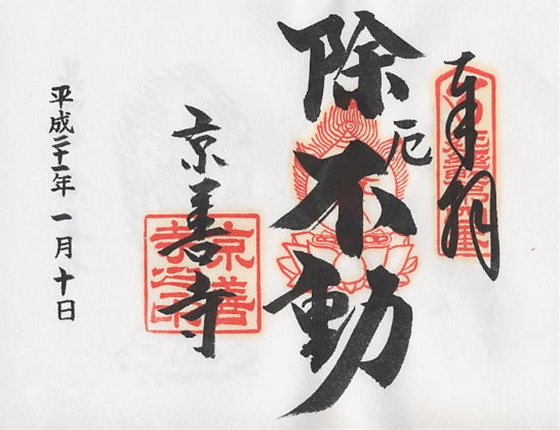 奉拝
除厄不動
京善寺
平成二十一年一月十日